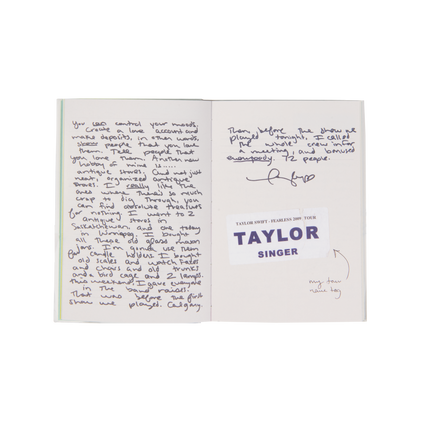 You can control your moods.
Create a love account and
make deposits, in other words,
show people that you love
them. Tell people that
you love them. Another new
hobby of mine is.....
antique stores. And not just
neat, organized antique
stores. I really like the
ones where there's so much
crap to dig through, you
can find absolute treasures
for nothing. I went to 2
antique stores in
Saskatchewan and one today
in Winnipeg. I bought
all these old glass mason
jars. I'm gonna use them
for candle holders. I bought
old scales and watch faces
and chests and old trunks
and a bird cage and 2 lamps.
This weekend, I gave everyone
in the band raises.
That was before the first
show we played. Calgary.
Then before the show we
played tonight, I called
the whole crew in for
a meeting, and bonused
everybody. 72 people.
TAYLOR SWIFT - FEARLESS 2009 TOUR
TAYLOR
SINGER
my tour
name tag